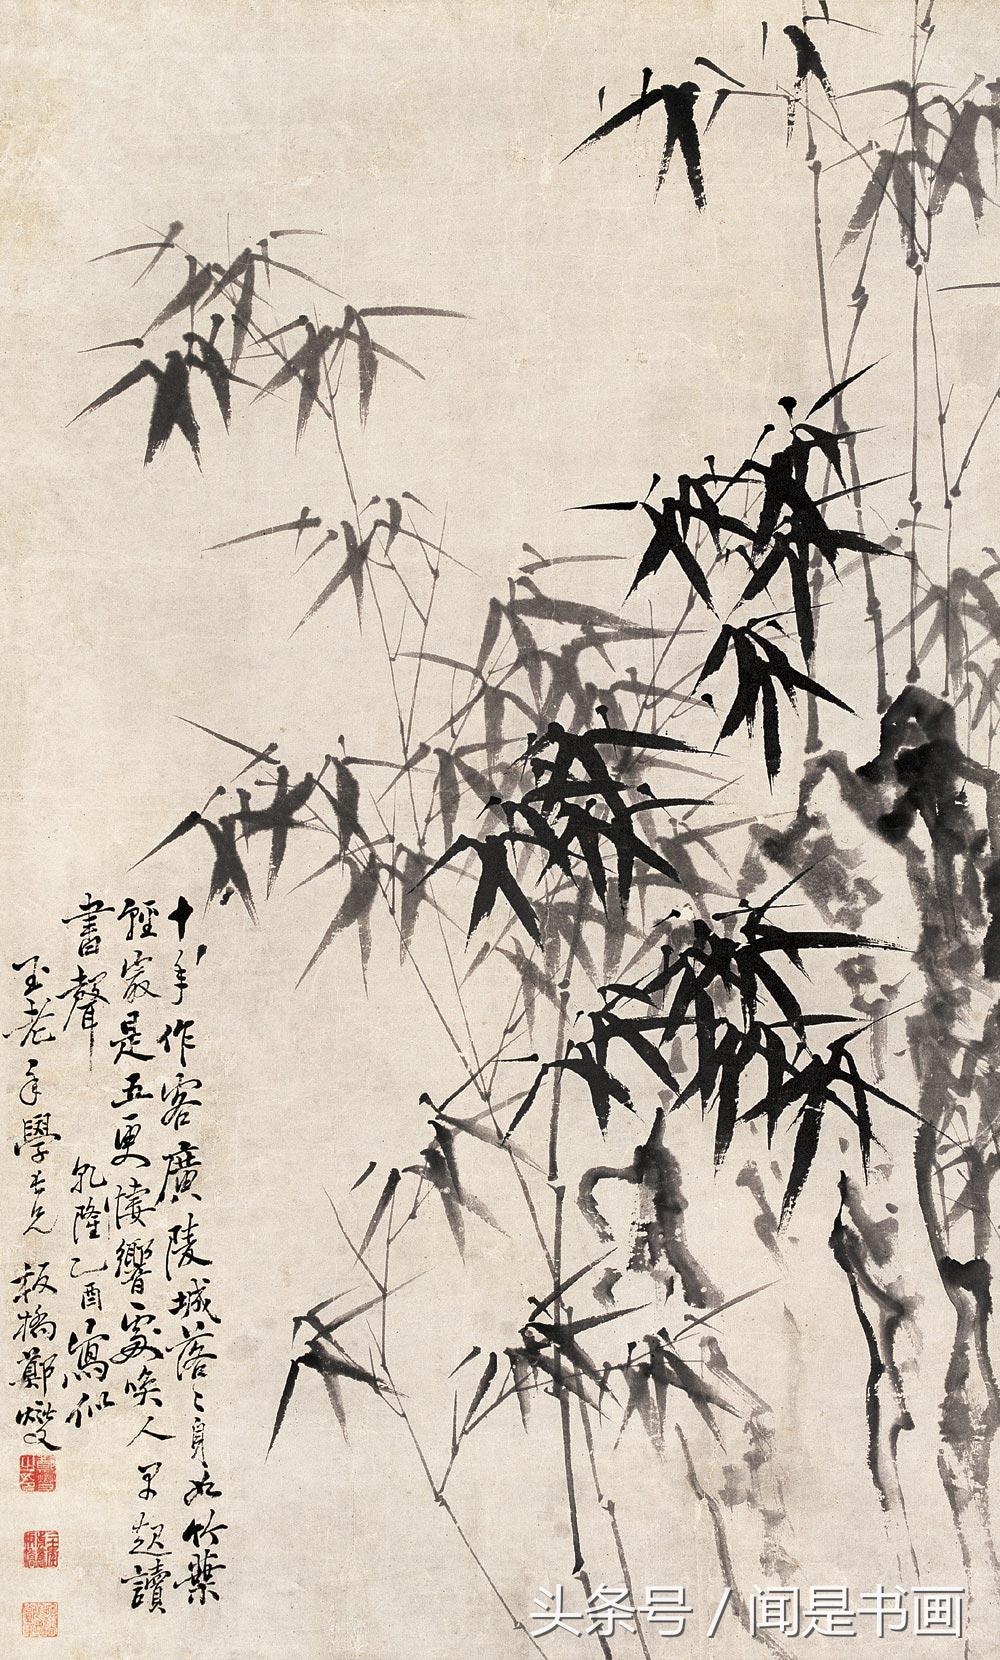 十年作客廣陵城落〻身如竹葉
輕最是五更悽響處喚人早起讀
書聲
乾隆乙酉寫似
玉老年學長兄 板橋鄭燮
头条号 / 闻是书画